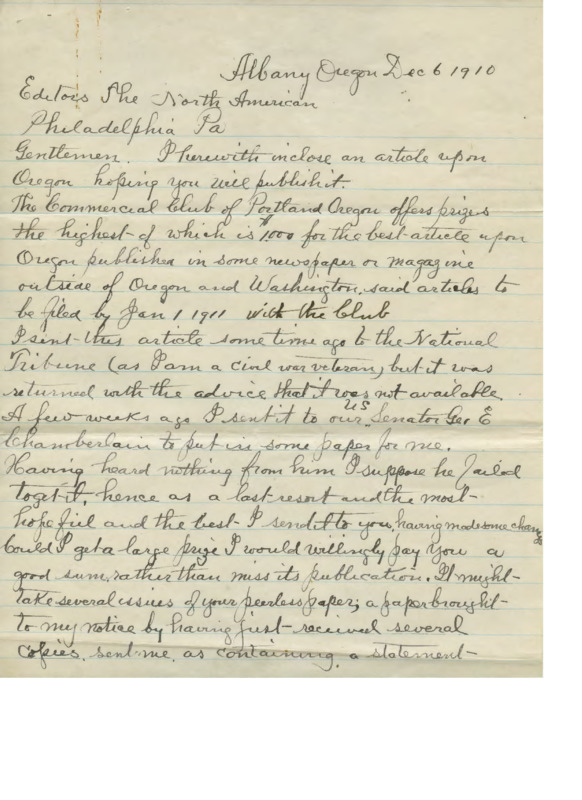 Albany Oregon Dec 6 1910
Editors The North American
Philadelphia Pa
Gentlemen. I herewith inclose an article upon
Oregon hoping you will publish it.
The Commercial Club of Portland Oregon offers prizes
the highest of which is $1000 for the best article upon
Oregon published in some newspaper or magazine
outside of Oregon and Washington, said articles to
be filed by Jan 1 1911 with the Club
I sent this article some time ago to the National
Tribune (as I am a civil war veteran) but it was
returned with the advice that it was not available.
A few weeks ago I sent it to our US Senator Geo E
Chamberlain to put in some paper for me.
Having heard nothing from him I suppose he failed
to get it, hence as a last resort and the most
hopeful and the best I send it to you, having made some change
Could I get a large prize I would willingly pay you a
good sum, rather than miss its publication. It might
take several issues of your peerless paper; a paper brought
to my notice by having just received several
copies, sent me, as containing a statement